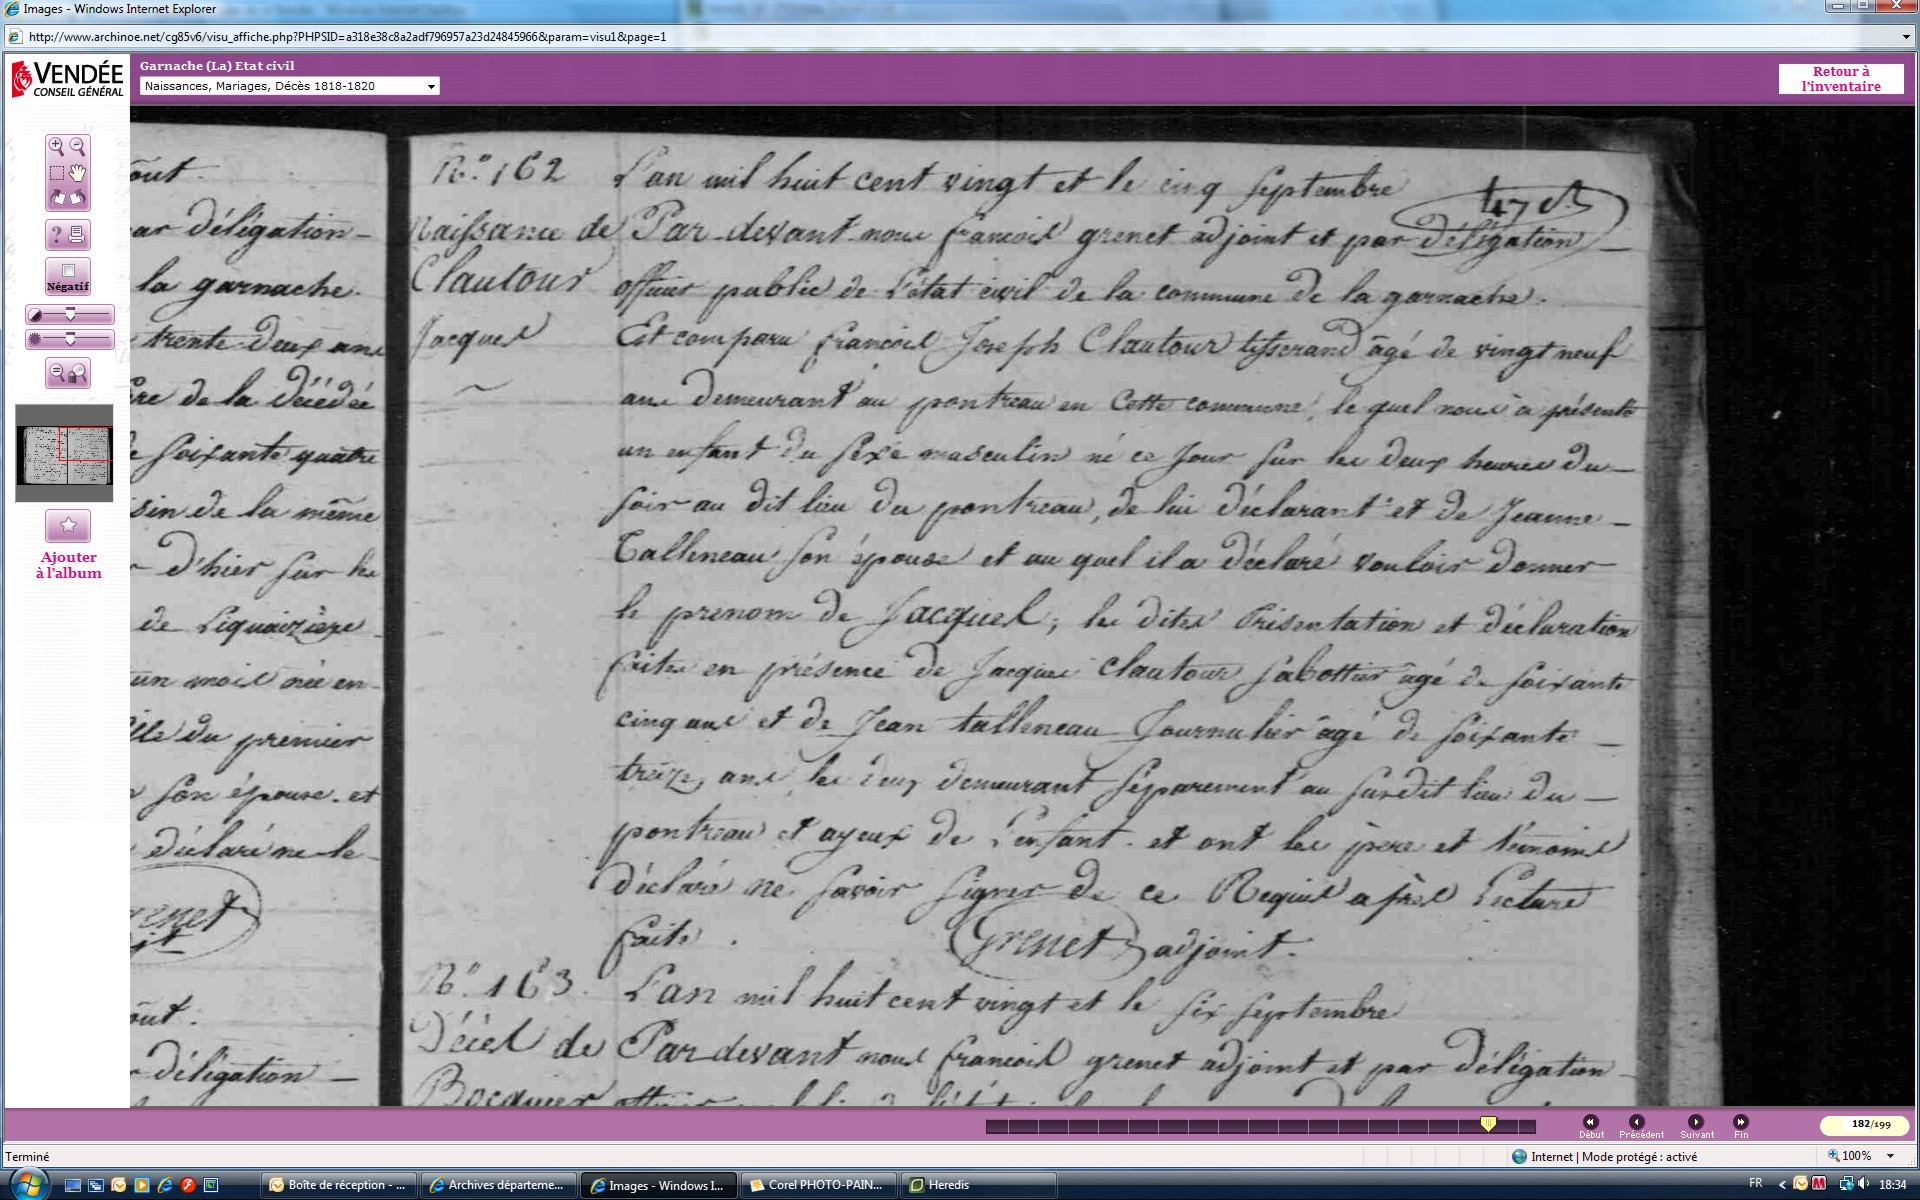 Images - Windows Internet Explorer
http://www.archinoe.net/cg85v6/visu_affiche.php?PHPSID=a318e38c8a2adf796957a23d24845966&param=visu1&page=1
VENDÉE
CONSEIL GÉNÉRAL
Garnache (La) Etat civil
Naissances, Mariages, Décès 1818-1820
Retour à
l'inventaire
Négatif
Ajouter
à l'album
par délégation
la garnache.
trente deux ans
de la décédée
soixante quatre
de la même
d'hier sur les
de
un mois née en
du premier
son épouse. et
déclaré ne le
délégation
N.º 162
Naissance de
Clautour
Jacques
L'an mil huit cent vingt et le cinq Septembre
Par devant nous francois grenet adjoint et par délégation
officier public de L'état civil de la commune de la garnache.
Est comparu francois Joseph Clautour tisserand âgé de vingt neuf
ans demeurant au pontreau en cette commune, le quel nous a présenté
un enfant du sexe masculin né ce jour sur les deux heures du
soir au dit lieu du pontreau, de lui déclarant et de Jeanne
Talleneau son épouse et au quel il a déclaré vouloir donner
le prenom de Jacques, les dites Présentation et déclaration
faites en présence de Jacques Clautour Sabottier âgé de soixante
cinq ans et de Jean talleneau Journalier âgé de soixante
treize ans, les deux demeurant séparement au susdit lieu du
pontreau et ayeux de L'enfant. et ont les père et témoins
déclaré ne savoir signer de ce Requis après Lecture
faite. Grenet adjoint.
N.º 163.
Décès de
Bocquier
L'an mil huit cent vingt et le six septembre
Par devant nous francois grenet adjoint et par délégation
Début
Précédent
Suivant
Fin
182/199
Terminé
Internet | Mode protégé : activé
100%
Boîte de réception - ...
Archives départeme...
Images - Windows I...
Corel PHOTO-PAIN...
Heredis
FR
18:34